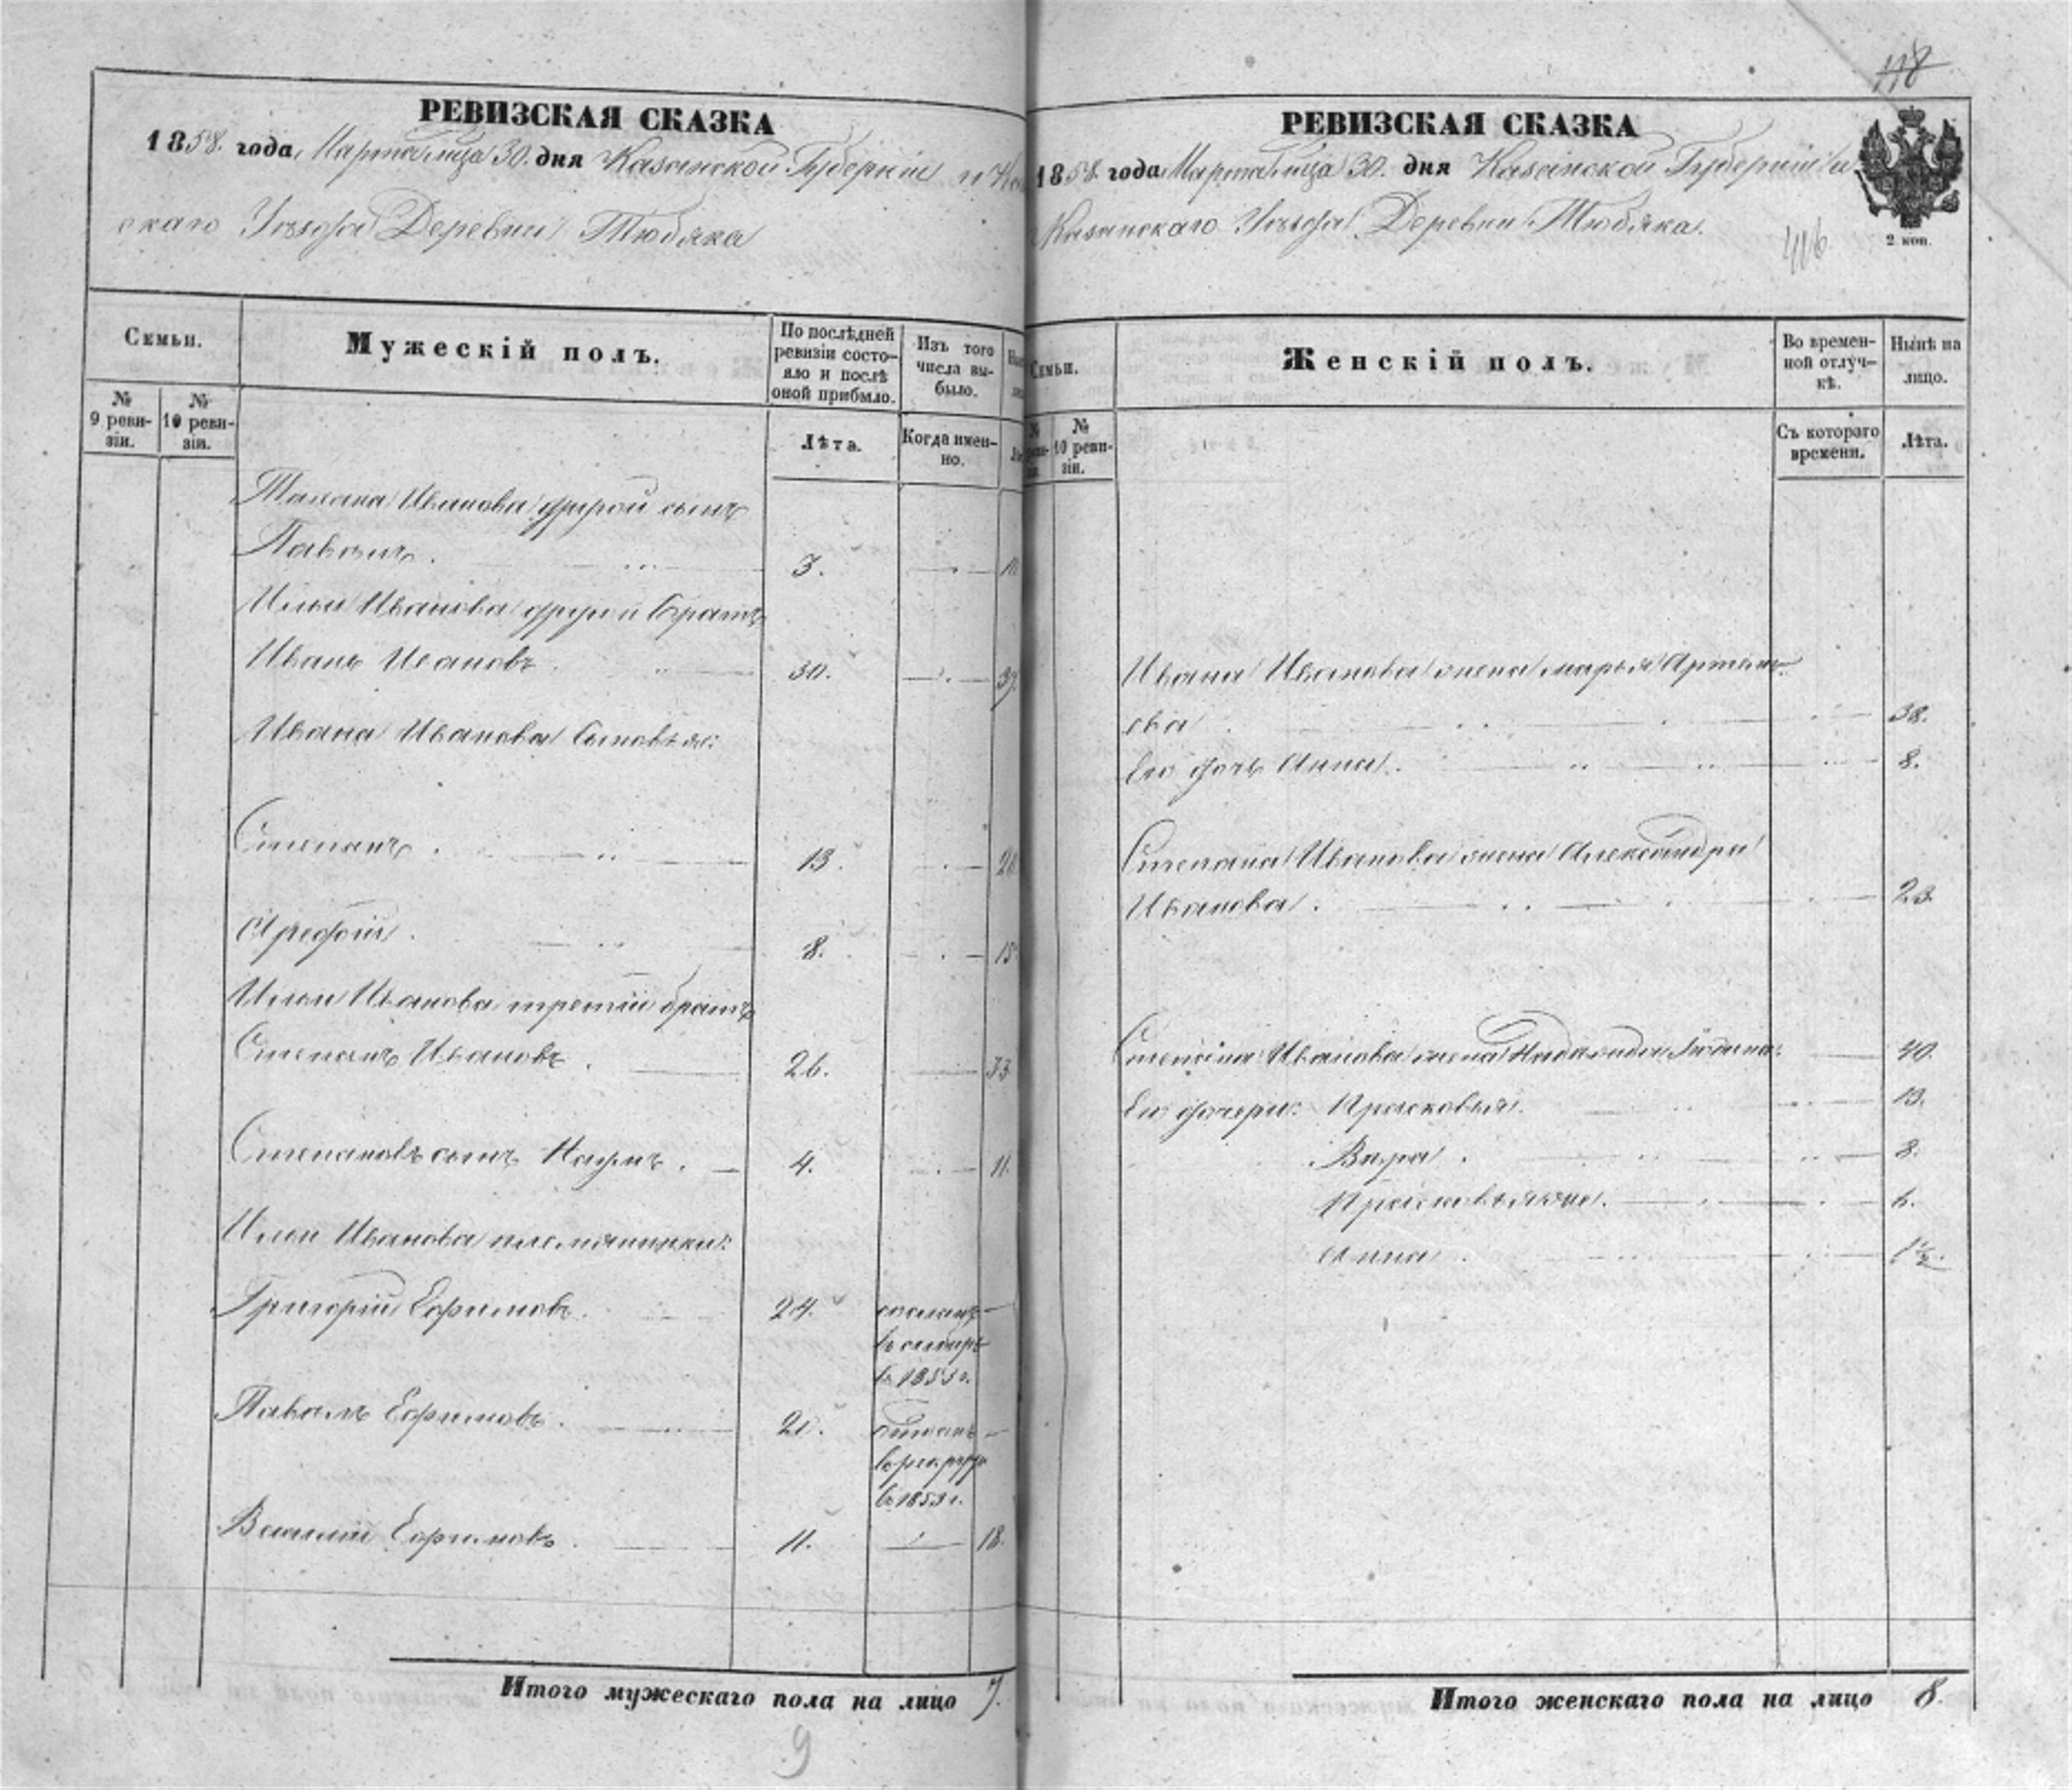 РЕВИЗСКАЯ СКАЗКА
1858. года, Марта м-ца 30. дня Казанской Губернии и
скаго Уезда Деревни Тюбяка
Семьи.
№ 9 реви-зіи.
№ 10 реви-зіи.
Мужескій полъ.
По послѣдней
ревизіи состо-
яло и послѣ
оной прибыло.
Лѣта.
Изъ того
числа вы-
было.
Когда имен-
но.
Иванова другой сынъ
3.
Ильи Иванова другой братъ
Иванъ Ивановъ 30. 37.
Ивана Иванова сыновья:
Степанъ 13.
Арефій 8. 15
Ильи Иванова третій братъ
Степанъ Ивановъ 26. 33
Степановъ сынъ Наумъ 4. 11.
Ильи Иванова племянники:
Григорій Ефимовъ 24. сосланъ
въ сибирь
въ 1855 г.
Павелъ Ефимовъ 21.
въ рекруты
въ 1853 г.
Василій Ефимовъ 11. 18.
Итого мужескаго пола на лицо 7.
9
118
РЕВИЗСКАЯ СКАЗКА
1858. года Марта м-ца 30. дня Казанской Губерніи и
Казанскаго Уезда Деревни Тюбяка.
416
2. коп.
Семьи.
10 реви-
зіи.
Женскій полъ.
Во времен-
ной отлуч-
кѣ.
Съ котораго
времени.
Нынѣ на
лицо.
Лѣта.
Ивана Иванова жена Марья Артемь-
ева 38.
Его дочь Анна 8.
Степана Иванова жена Александра
Иванова 23.
Степана Иванова жена 40.
Его дочери: Прасковья 13.
Вера 8.
Прасковья же 6.
Анна 1½.
Итого женскаго пола на лицо 8.